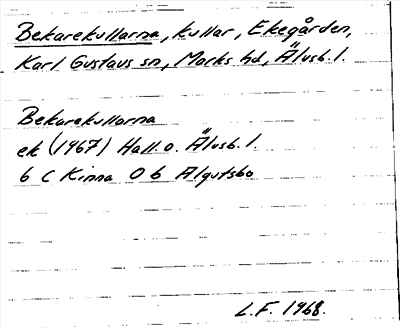 Bekarekullarna, kullar, Ekegården,
Karl Gustavs sn, Marks hd, Älvsb. l.
Bekarekullarna
ek (1967) Hall. o. Älvsb. l.
6 C Kinna 0 b Älgutsbo
L.F. 1968.